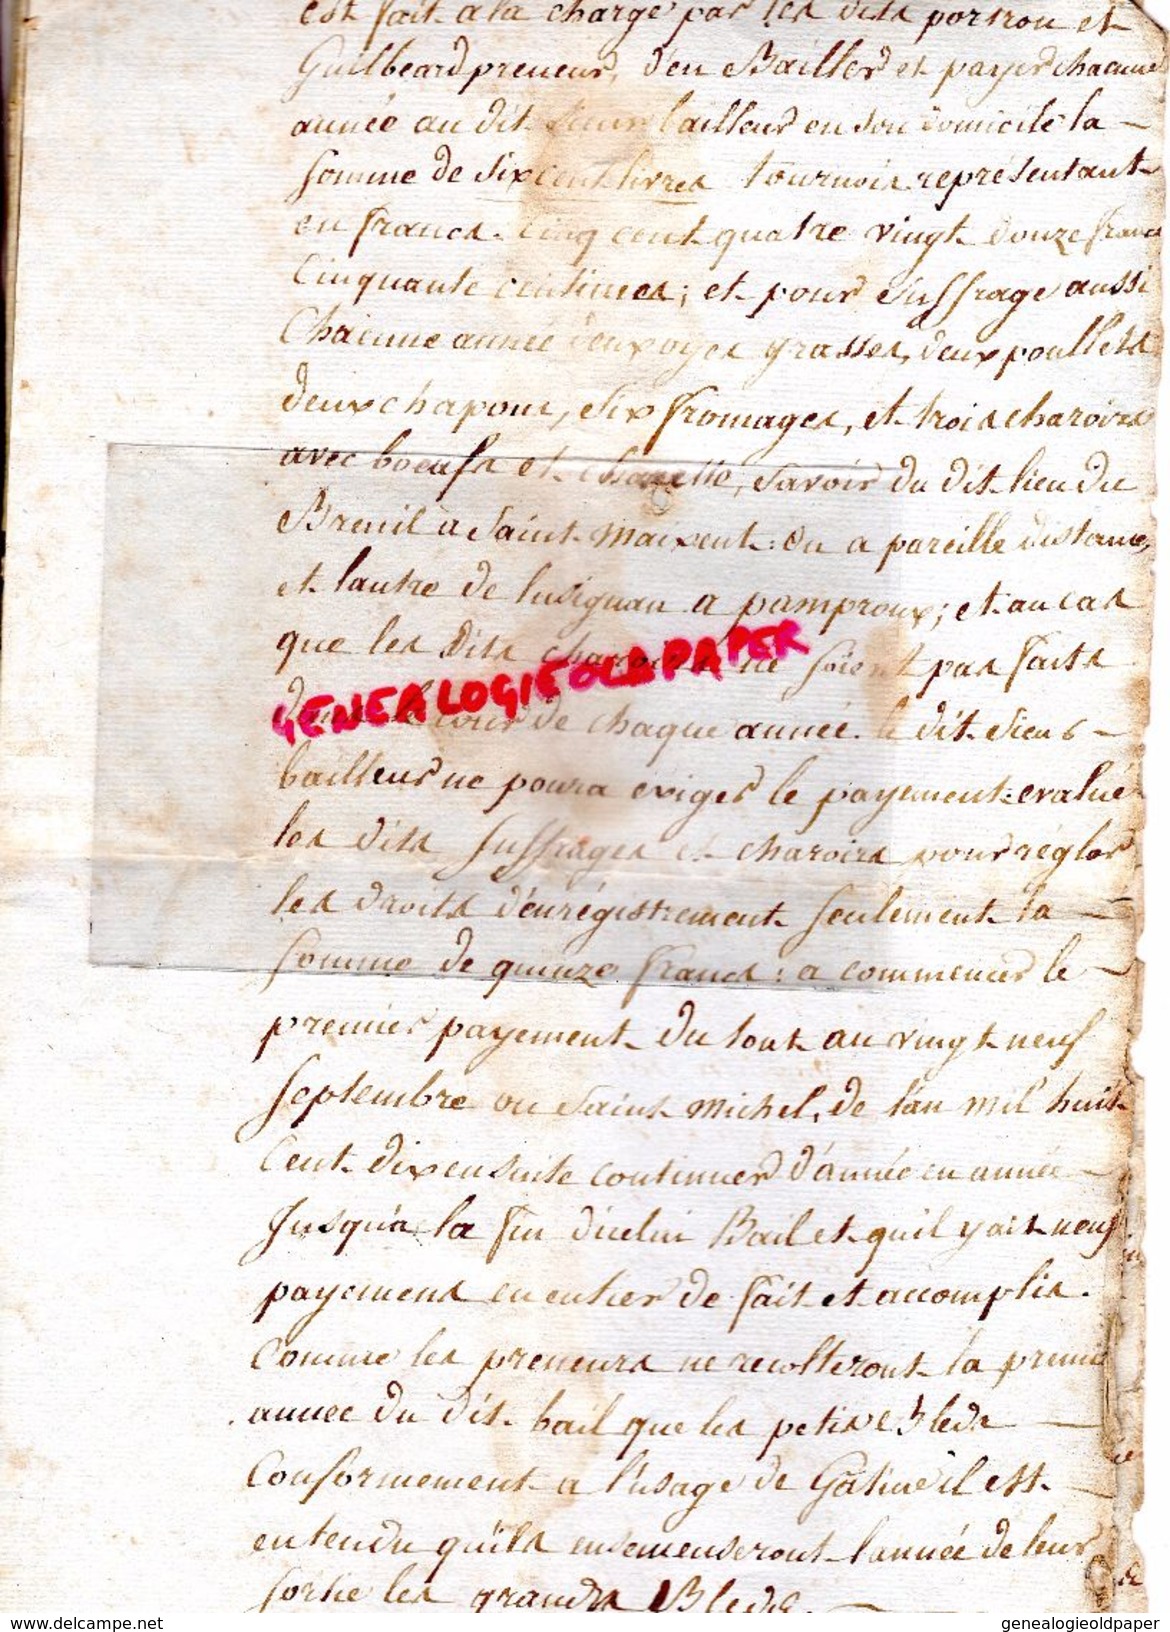 est fait a la charge par les dits porron et
Guilbeard preneurs, d'en Bailler et payer chacune
année au dit Sieur bailleur en son domicile la
somme de Six cent livres tournois représentant
en francs Cinq cent quatre vingt douze francs
Cinquante centimes; et pour Suffrage aussi
Chacune année deux oyes grasses, deux poullets
deux chapons, Six fromages, et trois charois
avec boeufs et charette, Savoir du dit lieu du
Breuil a Saint Maixent ou a pareille distance,
et lautre de lusignan a pamproux; et au cas
que les dits charoirs ne soient pas faits
dans le cour de chaque année le dit Sieur
bailleur ne poura exiger le payement evalué
les dits Suffrages et charoirs pour régler
les droits d'enrégistrement seulement la
somme de quinze francs: a commencer le
premier payement du tout au vingt neuf
septembre ou Saint Michel, de l'an mil huit
Cent dix ensuite continuer d'année en année
Jusqu'a la fin d'icelui Bail et qu'il y ait neuf
payemens en entier de fait et accomplis.
Comme les preneurs ne recolteront la premie
année du dit bail que les petis Bleds
Conformement a l'usage de Gatine il est
entendu qu'ils ensemenseront lannée de leur
sortie les grands Bleds.
GENEALOGIEOLDPAPER
genealogieoldpaper
www.delcampe.net